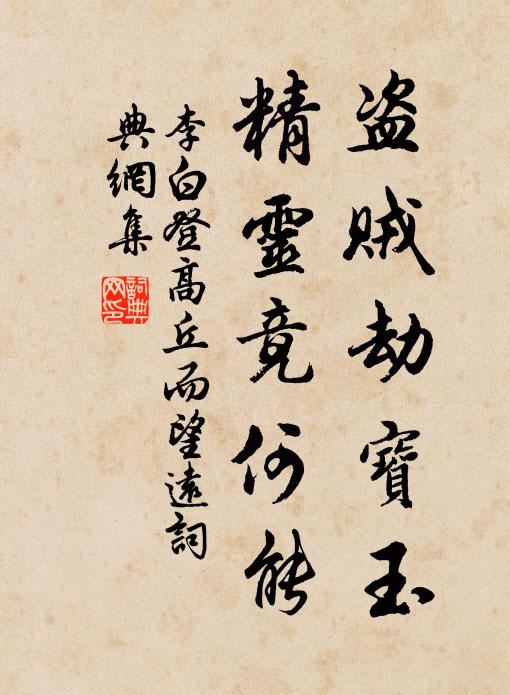 盗賊劫寶玉
精靈竟何能
李白登高丘而望遠詞
典網集
詞典網印